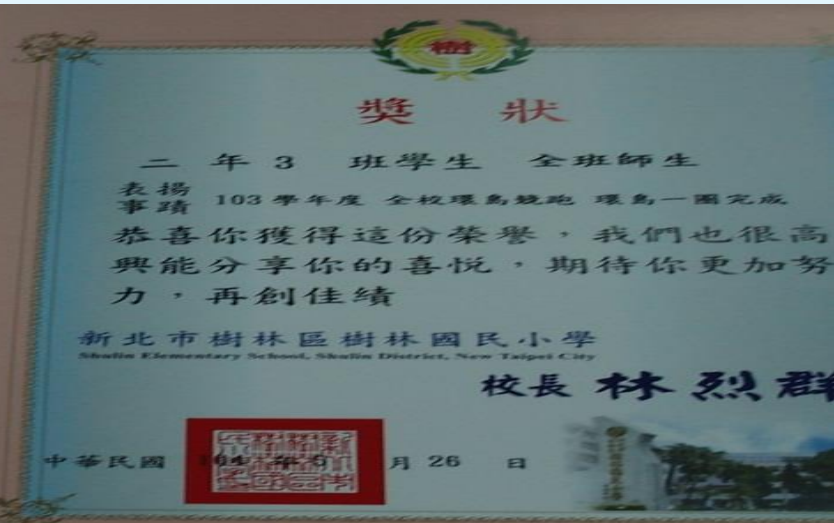 樹
獎 狀
二 年 3 班學生 全班師生
表揚事蹟 103 學年度 全校環島競跑 環島一圈完成
恭喜你獲得這份榮譽，我們也很高
興能分享你的喜悅，期待你更加努
力，再創佳績
新北市樹林區樹林國民小學
Shulin Elementary School, Shulin District, New Taipei City
校長 林烈群
中華民國 104 年 6 月 26 日